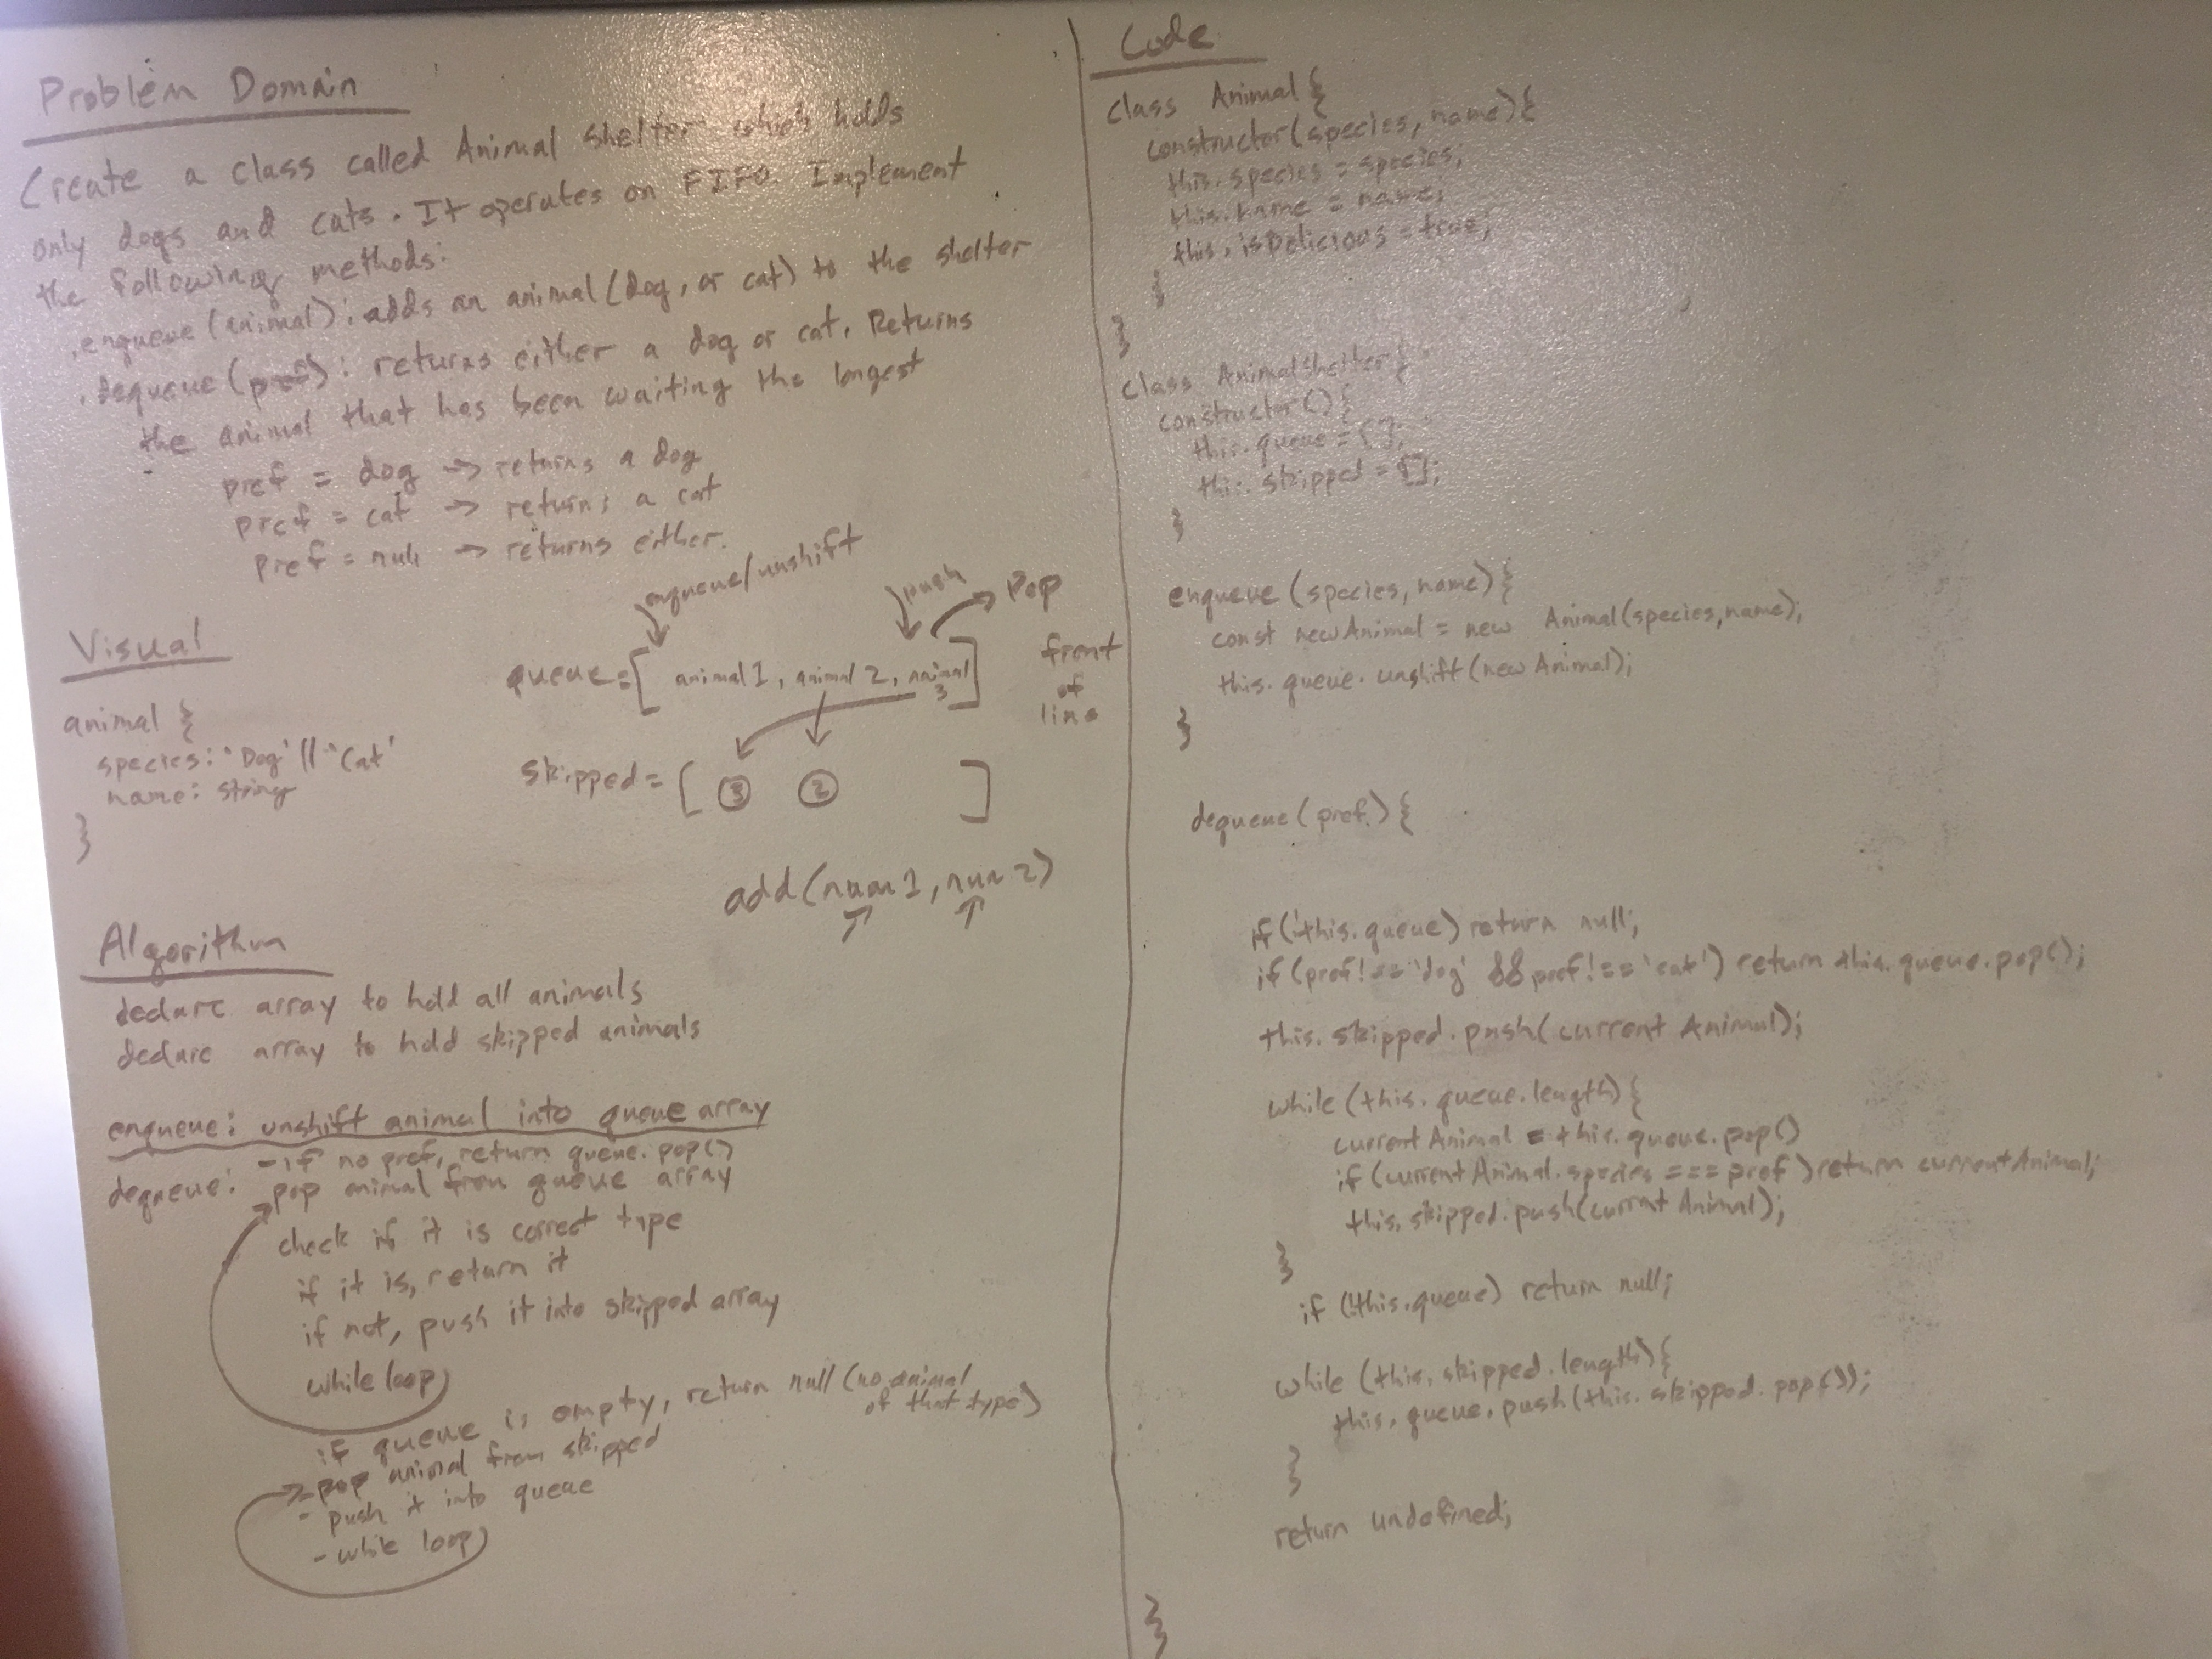 Problem Domain
Create a class called Animal Shelter which holds
only dogs and cats. It operates on FIFO. Implement
the following methods:
.enqueue (animal): adds an animal (dog, or cat) to the shelter
.dequeue (pref): returns either a dog or cat. Returns
the animal that has been waiting the longest
pref = dog -> returns a dog
pref = cat -> returns a cat
pref = null -> returns either.
Visual
animal {
species: 'Dog' || 'Cat'
name: string
}
enqueue/unshift
push
Pop
queue = [ animal 1, animal 2, animal 3 ]
front
of
line
skipped = [ 3 2 ]
add (num 1, num 2)
Algorithm
declare array to hold all animals
declare array to hold skipped animals
enqueue: unshift animal into queue array
- if no pref, return queue.pop()
dequeue: pop animal from queue array
check if it is correct type
if it is, return it
if not, push it into skipped array
while loop
if queue is empty, return null (no animal
of that type)
- pop animal from skipped
- push it into queue
- while loop
Code
class Animal {
constructor(species, name) {
this.species = species;
this.name = name;
this.isDelicious = true;
}
}
class AnimalShelter {
constructor() {
this.queue = [];
this.skipped = [];
}
enqueue (species, name) {
const newAnimal = new Animal(species, name);
this.queue.unshift(newAnimal);
}
dequeue (pref) {
if (!this.queue) return null;
if (pref !== 'dog' && pref !== 'cat') return this.queue.pop();
this.skipped.push(current Animal);
while (this.queue.length) {
currentAnimal = this.queue.pop()
if (currentAnimal.species === pref) return currentAnimal;
this.skipped.push(current Animal);
}
if (!this.queue) return null;
while (this.skipped.length) {
this.queue.push(this.skipped.pop());
}
return undefined;
}